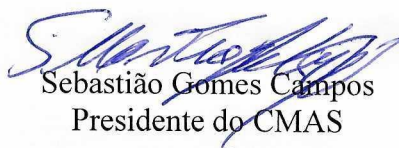 Sebastião Gomes Campos
Presidente do CMAS